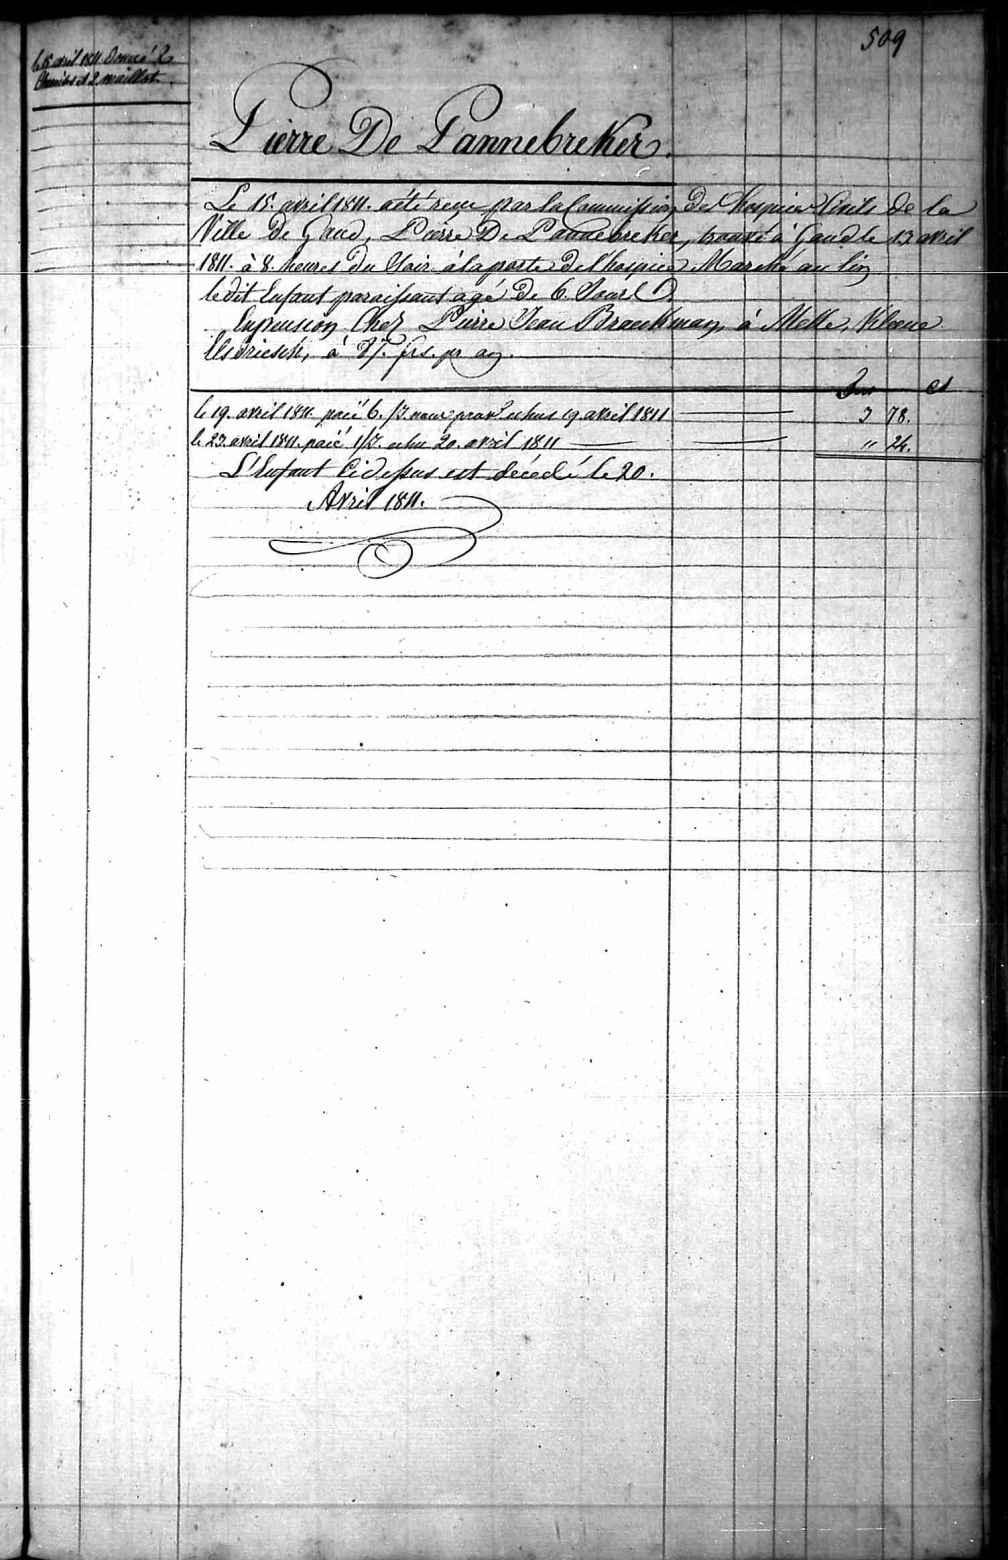 509
le 15 avril 1811. Donné 2
Chemises et 2 maillot.
Pierre De Pannebreker.
Le 15. avril 1811. a été recu par la Commission des hospices Civils de la
Ville de Gand, Pierre De Pannebreker, trouvé à Gand le 13 avril
1811. à 8. heures du Soir à la porte de l'hospice Marché au lin
le dit Enfant paraissant agé de 6. Jours
En pension Chez Pierre Jean Braeckman, à Melle,
à 87. frs. pr an.
frs cs
le 19. avril 1811. paié 6. echus 19 avril 1811 3 78.
le 23. avril 1811. paié echu 20. avril 1811 " 24.
L'Enfant Cidessus est décédé le 20.
Avril 1811.